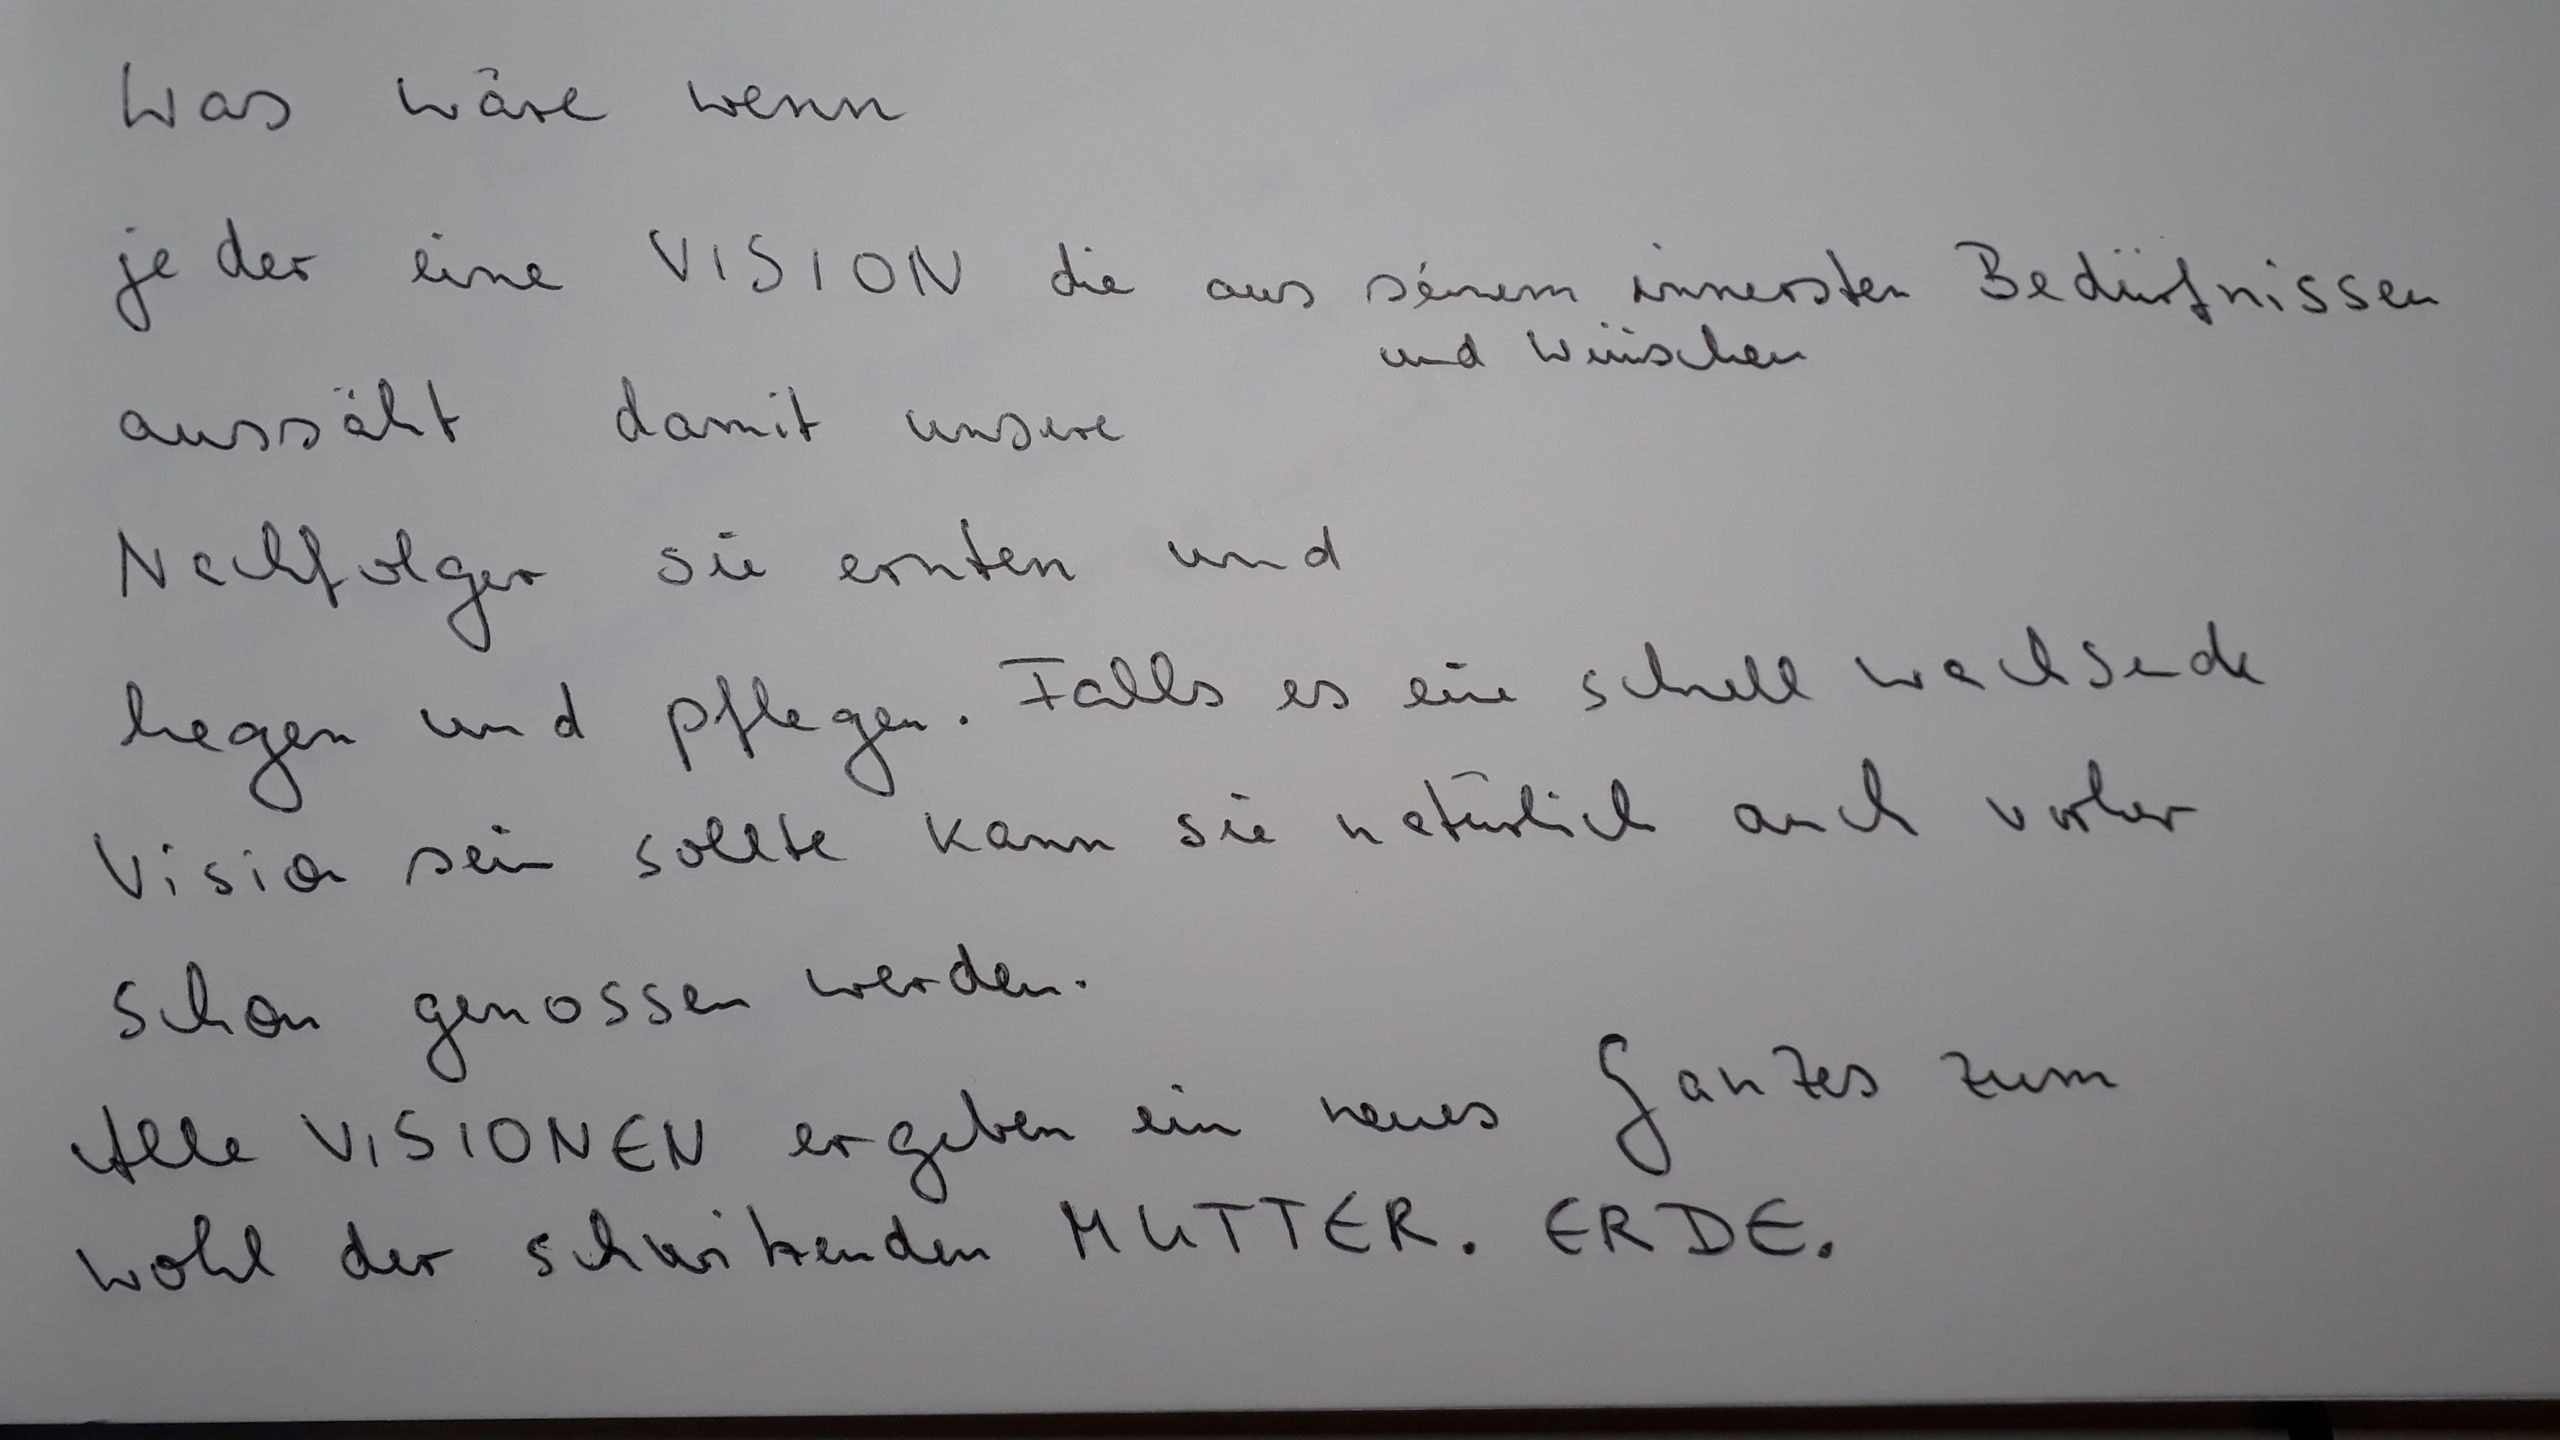 Was wäre wenn
jeder eine VISION die aus seinem innersten Bedürfnissen
und Wünschen
aussäht damit unsere
Nachfolger sie ernten und
hegen und pflegen. Falls es eine schnell wachsende
Vision sein sollte kann sie natürlich auch vorher
schon genossen werden.
Alle VISIONEN ergeben ein neues Ganzes zum
wohl der schwitzenden MUTTER. ERDE.